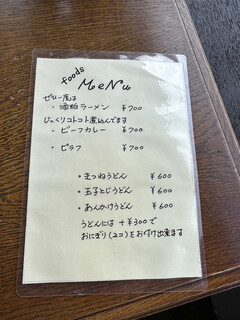 foods
MeNu
ぜひ一度は
・酒粕ラーメン ¥700
じっくりコトコト煮込んでます
・ビーフカレー ¥700
・ピラフ ¥700
・きつねうどん ¥600
・玉子とじうどん ¥600
・あんかけうどん ¥600
うどんには +¥300で
おにぎり(2コ)をお付け出来ます